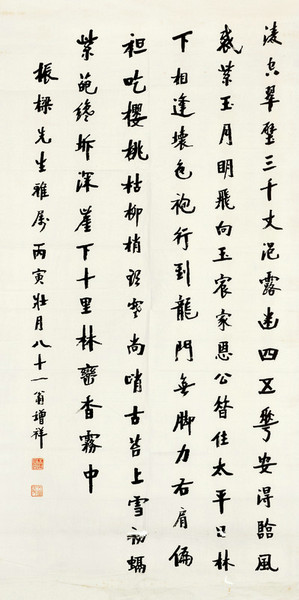 淩空翠壁三千丈浥露幽四五萼安得臨風
裁紫玉月明飛向玉宸家恩公住太平只林
下相逢壞色袍行到龍門無脚力右肩偏
袒吃櫻桃枯柳梢尚哨古苔上雪初螭
紫葩纔坼深崖下十里林巒香霧中
振樑先生雅屬丙寅壯月八十一翁增祥